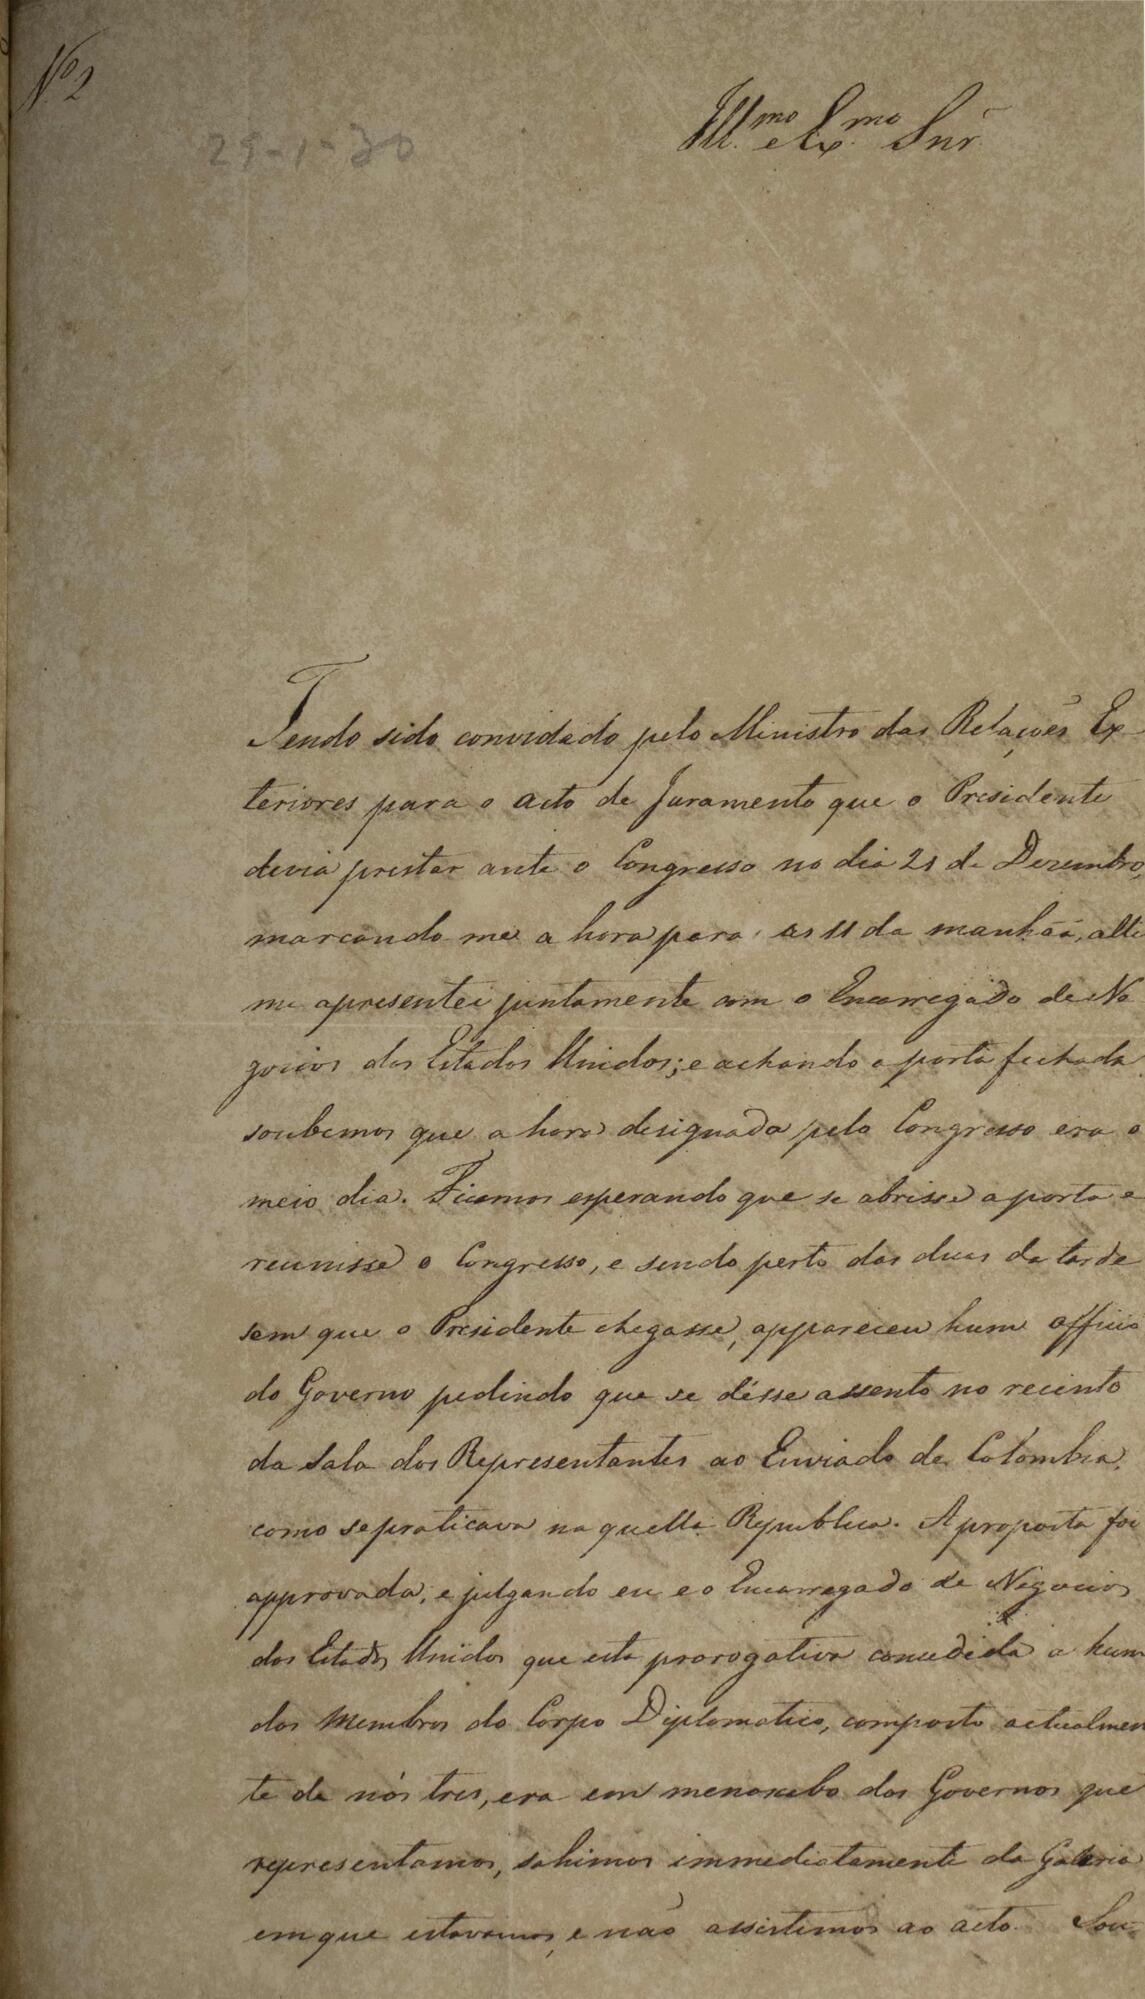 Nº 2
29-1-30
Ill.mo e Ex.mo Snr.
Tendo sido convidado pelo Ministro das Relações Ex-
teriores para o acto de Juramento que o Presidente
devia prestar ante o Congresso no dia 21 de Dezembro,
marcando me a hora para as 11 da manhãa, alli
me apresentei juntamente com o Encarregado de Ne
gocios dos Estados Unidos; e achando a porta fechada
soubemos que a hora designada pelo Congresso era o
meio dia. Ficamos esperando que se abrisse a porta e
reunisse o Congresso, e sendo perto das duas da tarde
sem que o Presidente chegasse, appareceu hum officio
do Governo pedindo que se désse assento no recinto
da Sala dos Representantes ao Enviado de Colombia,
como se praticava na quella Republica. A proposta foi
approvada, e julgando eu e o Encarregado de Negocios
dos Estados Unidos que esta prorogativa concedida a hum
dos Membros do Corpo Diplomatico, composto actualmen
te de nós tres, era em menoscabo dos Governos que
representamos, sahimos immediatamente da Galeria
em que estavamos, e não assistimos ao acto. Sou-